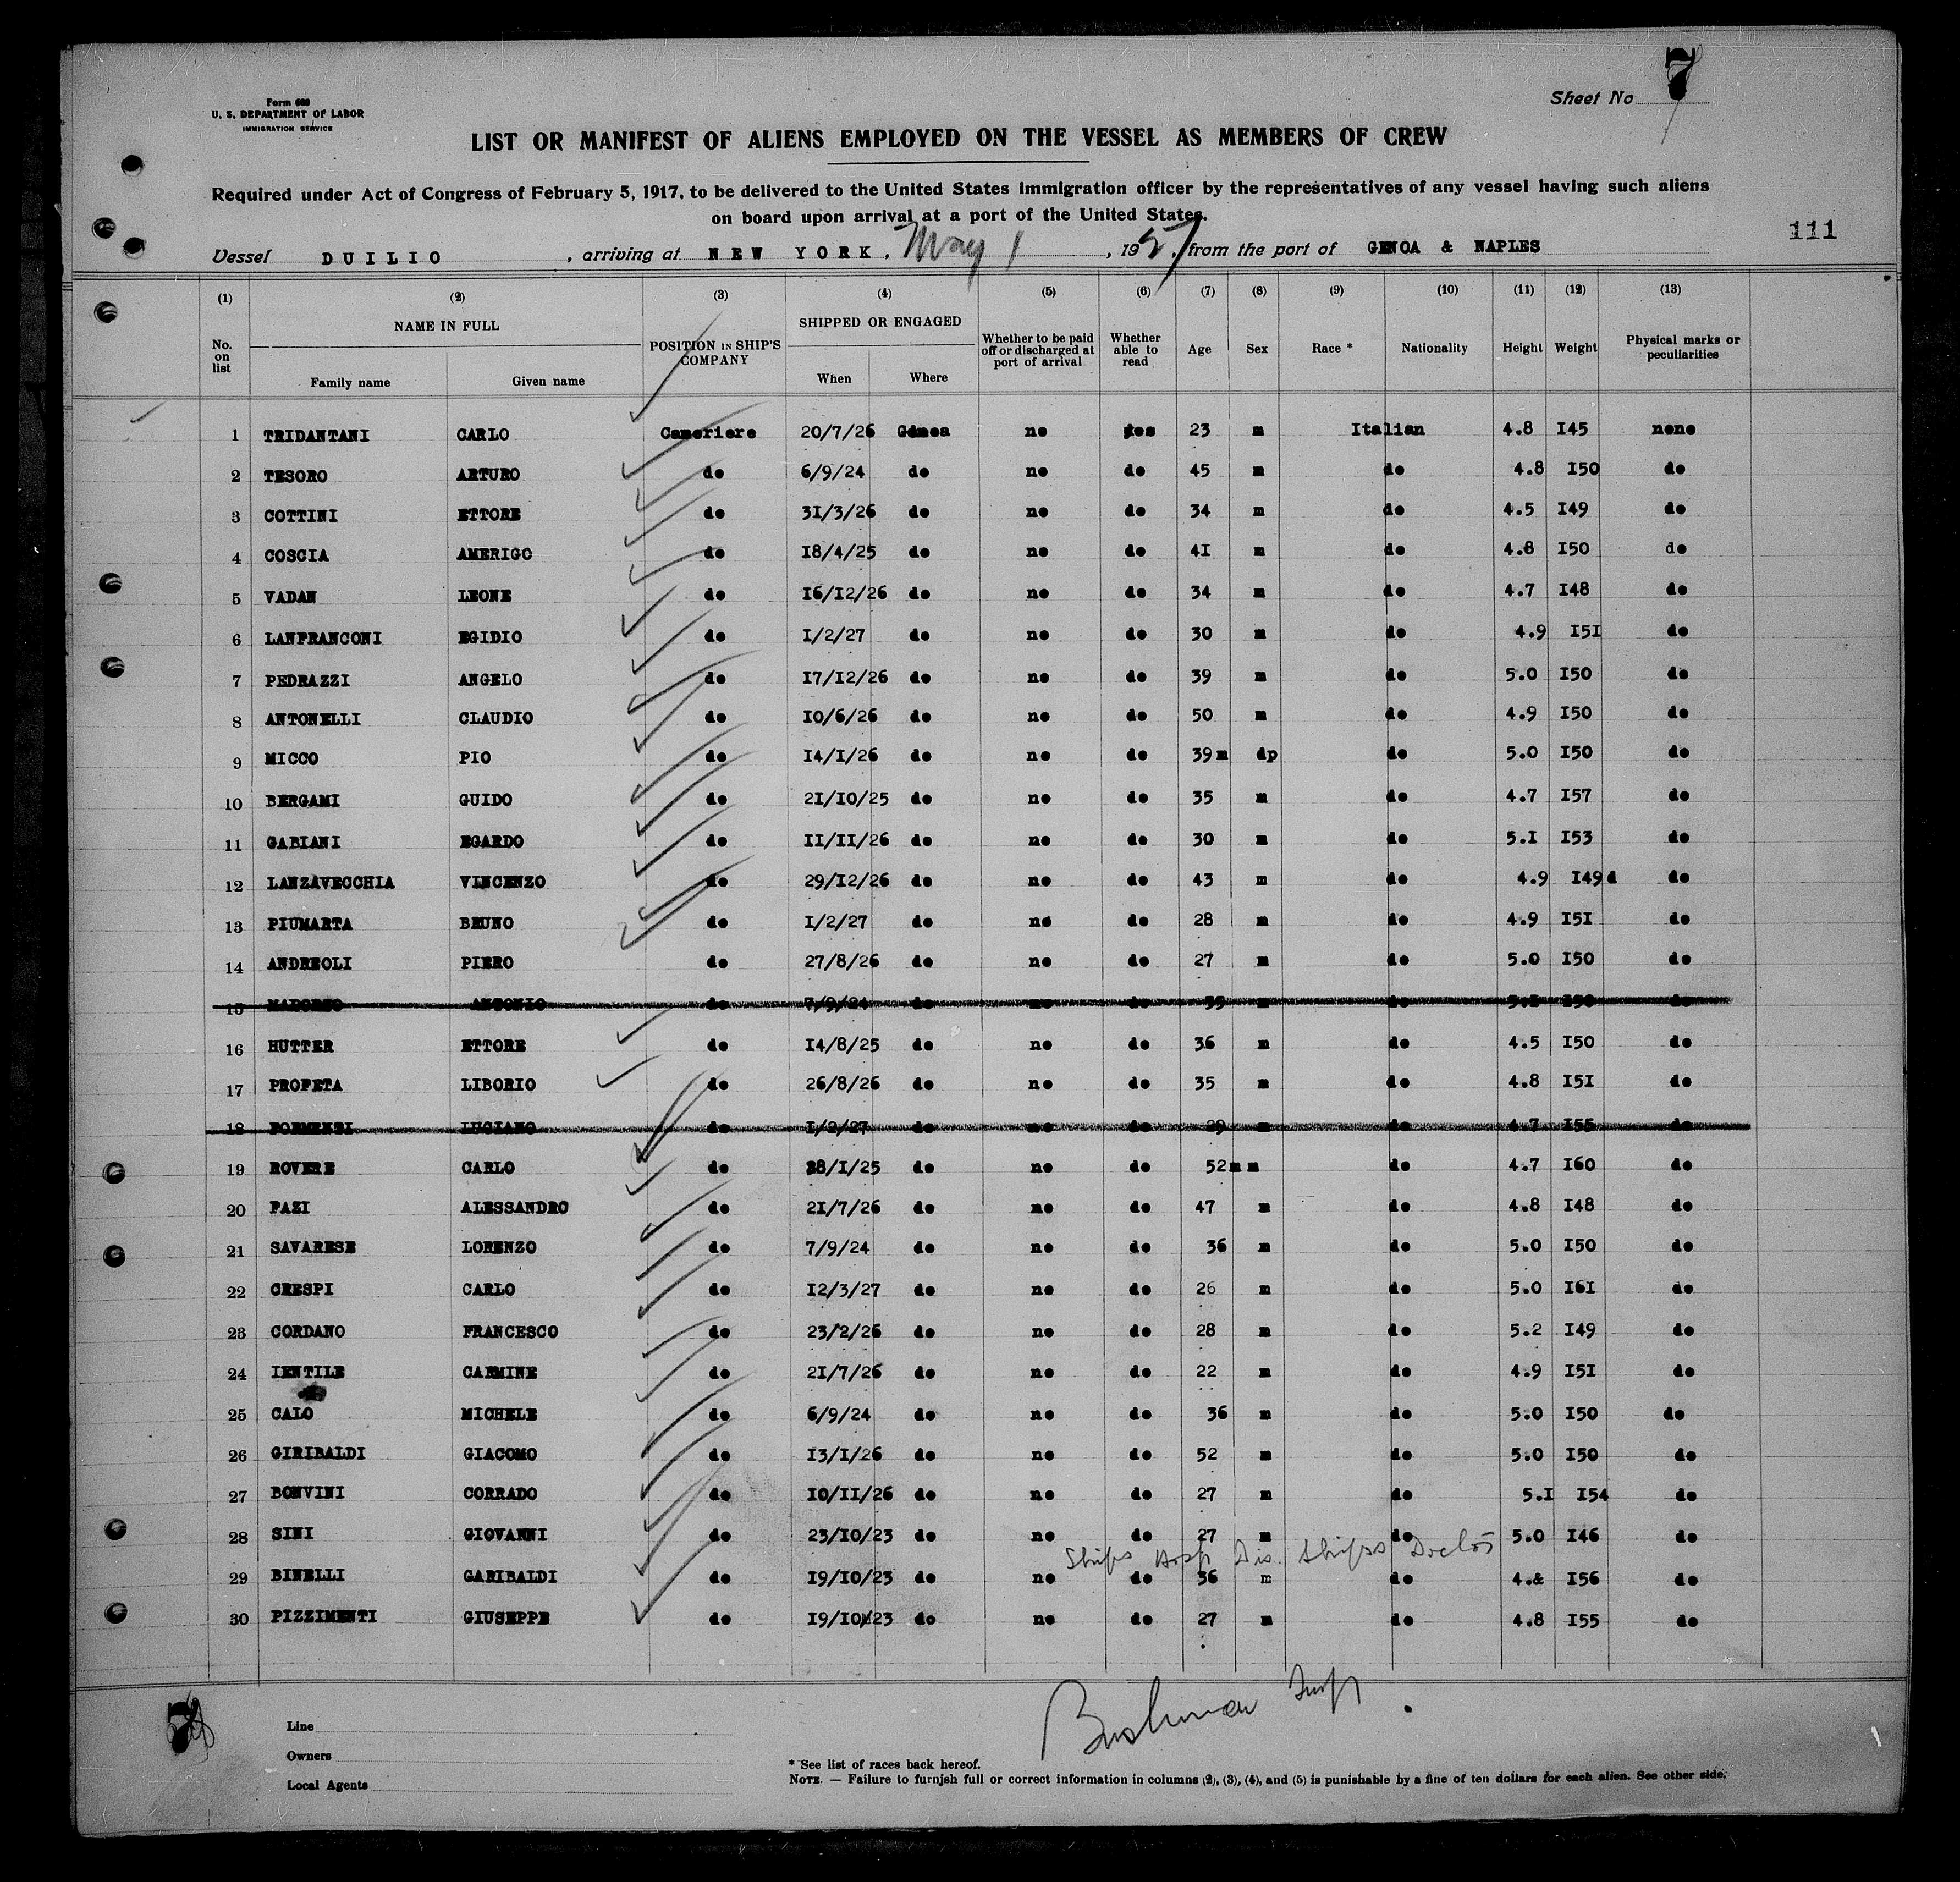 Sheet No 7
Form 680
U. S. DEPARTMENT OF LABOR
IMMIGRATION SERVICE
LIST OR MANIFEST OF ALIENS EMPLOYED ON THE VESSEL AS MEMBERS OF CREW
Required under Act of Congress of February 5, 1917, to be delivered to the United States immigration officer by the representatives of any vessel having such aliens
on board upon arrival at a port of the United States.
111
Vessel DUILIO, arriving at NEW YORK, May 1, 1927, from the port of GENOA & NAPLES
(1) (2) (3) (4) (5) (6) (7) (8) (9) (10) (11) (12) (13)
No. on list NAME IN FULL Family name Given name POSITION IN SHIP'S COMPANY SHIPPED OR ENGAGED When Where Whether to be paid off or discharged at port of arrival Whether able to read Age Sex Race * Nationality Height Weight Physical marks or peculiarities
1 TRIDANTANI CARLO Cameriere 20/7/26 Genoa no yes 23 m Italian 4.8 I45 none
2 TESORO ARTURO do 6/9/24 do no do 45 m do 4.8 I50 do
3 COTTINI ETTORE do 3I/3/26 do no do 34 m do 4.5 I49 do
4 COSCIA AMERIGO do I8/4/25 do no do 4I m do 4.8 I50 do
5 VADAN LEONE do I6/I2/26 do no do 34 m do 4.7 I48 do
6 LANFRANCONI EGIDIO do I/2/27 do no do 30 m do 4.9 I5I do
7 PEDRAZZI ANGELO do I7/I2/26 do no do 39 m do 5.0 I50 do
8 ANTONELLI CLAUDIO do I0/6/26 do no do 50 m do 4.9 I50 do
9 MICCO PIO do I4/I/26 do no do 39 m dp do 5.0 I50 do
10 BERGAMI GUIDO do 2I/I0/25 do no do 35 m do 4.7 I57 do
11 GABIANI EGARDO do II/II/26 do no do 30 m do 5.I I53 do
12 LANZAVECCHIA VINCENZO do 29/I2/26 do no do 43 m do 4.9 I49d do
13 PIUMARTA BRUNO do I/2/27 do no do 28 m do 4.9 I5I do
14 ANDREOLI PIERO do 27/8/26 do no do 27 m do 5.0 I50 do
15 ANTONIO do 7/9/24 do no do 35 m do 5.I I50 do
16 HUTTER ETTORE do I4/8/25 do no do 36 m do 4.5 I50 do
17 PROFETA LIBORIO do 26/8/26 do no do 35 m do 4.8 I5I do
18 FORMENTI LUCIANO do I/2/27 do no do 29 m do 4.7 I55 do
19 ROVERE CARLO do 28/I/25 do no do 52 m m do 4.7 I60 do
20 FAZI ALESSANDRO do 2I/7/26 do no do 47 m do 4.8 I48 do
21 SAVARESE LORENZO do 7/9/24 do no do 36 m do 5.0 I50 do
22 CRESPI CARLO do I2/3/27 do no do 26 m do 5.0 I6I do
23 CORDANO FRANCESCO do 23/2/26 do no do 28 m do 5.2 I49 do
24 IENTILE CARMINE do 2I/7/26 do no do 22 m do 4.9 I5I do
25 CALO MICHELE do 6/9/24 do no do 36 m do 5.0 I50 do
26 GIRIBALDI GIACOMO do I3/I/26 do no do 52 m do 5.0 I50 do
27 BONVINI CORRADO do I0/II/26 do no do 27 m do 5.I I54 do
28 SINI GIOVANNI do 23/I0/23 do no do 27 m do 5.0 I46 do
Ships Hosp Dis. Ships Doctor
29 BINELLI GARIBALDI do I9/I0/23 do no do 36 m do 4.& I56 do
30 PIZZIMENTI GIUSEPPE do I9/I0/23 do no do 27 m do 4.8 I55 do
7
Line
Owners
Local Agents
* See list of races back hereof.
NOTE. — Failure to furnish full or correct information in columns (2), (3), (4), and (5) is punishable by a fine of ten dollars for each alien. See other side.